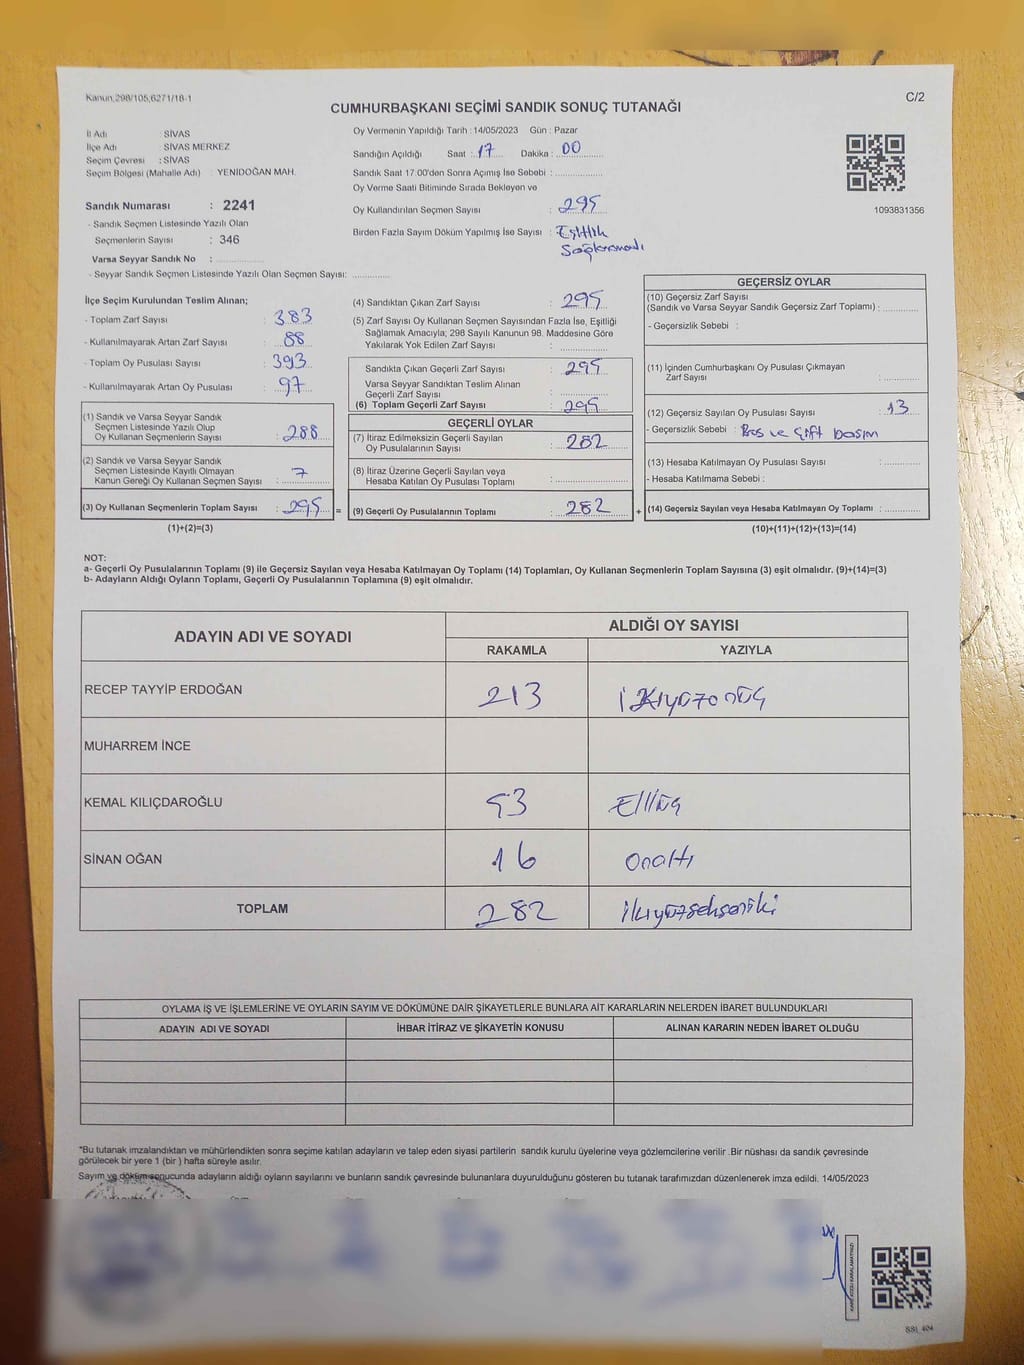 Kanun,298/105,6271/18-1
C/2
CUMHURBAŞKANI SEÇİMİ SANDIK SONUÇ TUTANAĞI
İl Adı : SİVAS
İlçe Adı : SİVAS MERKEZ
Seçim Çevresi : SİVAS
Seçim Bölgesi (Mahalle Adı) : YENİDOĞAN MAH.
Sandık Numarası : 2241
- Sandık Seçmen Listesinde Yazılı Olan
Seçmenlerin Sayısı : 346
Varsa Seyyar Sandık No :
- Seyyar Sandık Seçmen Listesinde Yazılı Olan Seçmen Sayısı:
Oy Vermenin Yapıldığı Tarih : 14/05/2023 Gün : Pazar
Sandığın Açıldığı Saat : 17 Dakika : 00
Sandık Saat 17.00'den Sonra Açımış İse Sebebi :
Oy Verme Saati Bitiminde Sırada Bekleyen ve
Oy Kullandırılan Seçmen Sayısı : 295
Birden Fazla Sayım Döküm Yapılmış İse Sayısı : Eşitlik
Sağlanmadı
1093831356
İlçe Seçim Kurulundan Teslim Alınan;
- Toplam Zarf Sayısı : 383
- Kullanılmayarak Artan Zarf Sayısı : 88
- Toplam Oy Pusulası Sayısı : 393
- Kullanılmayarak Artan Oy Pusulası : 97
(1) Sandık ve Varsa Seyyar Sandık
Seçmen Listesinde Yazılı Olup
Oy Kullanan Seçmenlerin Sayısı : 288
(2) Sandık ve Varsa Seyyar Sandık
Seçmen Listesinde Kayıtlı Olmayan
Kanun Gereği Oy Kullanan Seçmen Sayısı : 7
(3) Oy Kullanan Seçmenlerin Toplam Sayısı : 295 =
(1)+(2)=(3)
(4) Sandıktan Çıkan Zarf Sayısı : 295
(5) Zarf Sayısı Oy Kullanan Seçmen Sayısından Fazla İse, Eşitliği
Sağlamak Amacıyla; 298 Sayılı Kanunun 98. Maddesine Göre
Yakılarak Yok Edilen Zarf Sayısı :
Sandıkta Çıkan Geçerli Zarf Sayısı : 295
Varsa Seyyar Sandıktan Teslim Alınan
Geçerli Zarf Sayısı :
(6) Toplam Geçerli Zarf Sayısı : 295
GEÇERLİ OYLAR
(7) İtiraz Edilmeksizin Geçerli Sayılan
Oy Pusulalarının Sayısı : 282
(8) İtiraz Üzerine Geçerli Sayılan veya
Hesaba Katılan Oy Pusulası Toplamı :
(9) Geçerli Oy Pusulalarının Toplamı : 282 +
GEÇERSİZ OYLAR
(10) Geçersiz Zarf Sayısı
(Sandık ve Varsa Seyyar Sandık Geçersiz Zarf Toplamı) :
- Geçersizlik Sebebi :
(11) İçinden Cumhurbaşkanı Oy Pusulası Çıkmayan
Zarf Sayısı :
(12) Geçersiz Sayılan Oy Pusulası Sayısı : 13
- Geçersizlik Sebebi : Boş ve Çift basım
(13) Hesaba Katılmayan Oy Pusulası Sayısı :
- Hesaba Katılmama Sebebi :
(14) Geçersiz Sayılan veya Hesaba Katılmayan Oy Toplamı :
(10)+(11)+(12)+(13)=(14)
NOT:
a- Geçerli Oy Pusulalarının Toplamı (9) ile Geçersiz Sayılan veya Hesaba Katılmayan Oy Toplamı (14) Toplamları, Oy Kullanan Seçmenlerin Toplam Sayısına (3) eşit olmalıdır. (9)+(14)=(3)
b- Adayların Aldığı Oyların Toplamı, Geçerli Oy Pusulalarının Toplamına (9) eşit olmalıdır.
ADAYIN ADI VE SOYADI
ALDIĞI OY SAYISI
RAKAMLA YAZIYLA
RECEP TAYYİP ERDOĞAN 213 ikiyüzonüç
MUHARREM İNCE
KEMAL KILIÇDAROĞLU 53 Elliüç
SİNAN OĞAN 16 Onaltı
TOPLAM 282 ikiyüzsekseniki
OYLAMA İŞ VE İŞLEMLERİNE VE OYLARIN SAYIM VE DÖKÜMÜNE DAİR ŞİKAYETLERLE BUNLARA AİT KARARLARIN NELERDEN İBARET BULUNDUKLARI
ADAYIN ADI VE SOYADI İHBAR İTİRAZ VE ŞİKAYETİN KONUSU ALINAN KARARIN NEDEN İBARET OLDUĞU
*Bu tutanak imzalandıktan ve mühürlendikten sonra seçime katılan adayların ve talep eden siyasi partilerin sandık kurulu üyelerine veya gözlemcilerine verilir .Bir nüshası da sandık çevresinde
görülecek bir yere 1 (bir ) hafta süreyle asılır.
Sayım ve döküm sonucunda adayların aldığı oyların sayılarını ve bunların sandık çevresinde bulunanlara duyurulduğunu gösteren bu tutanak tarafımızdan düzenlenerek imza edildi. 14/05/2023